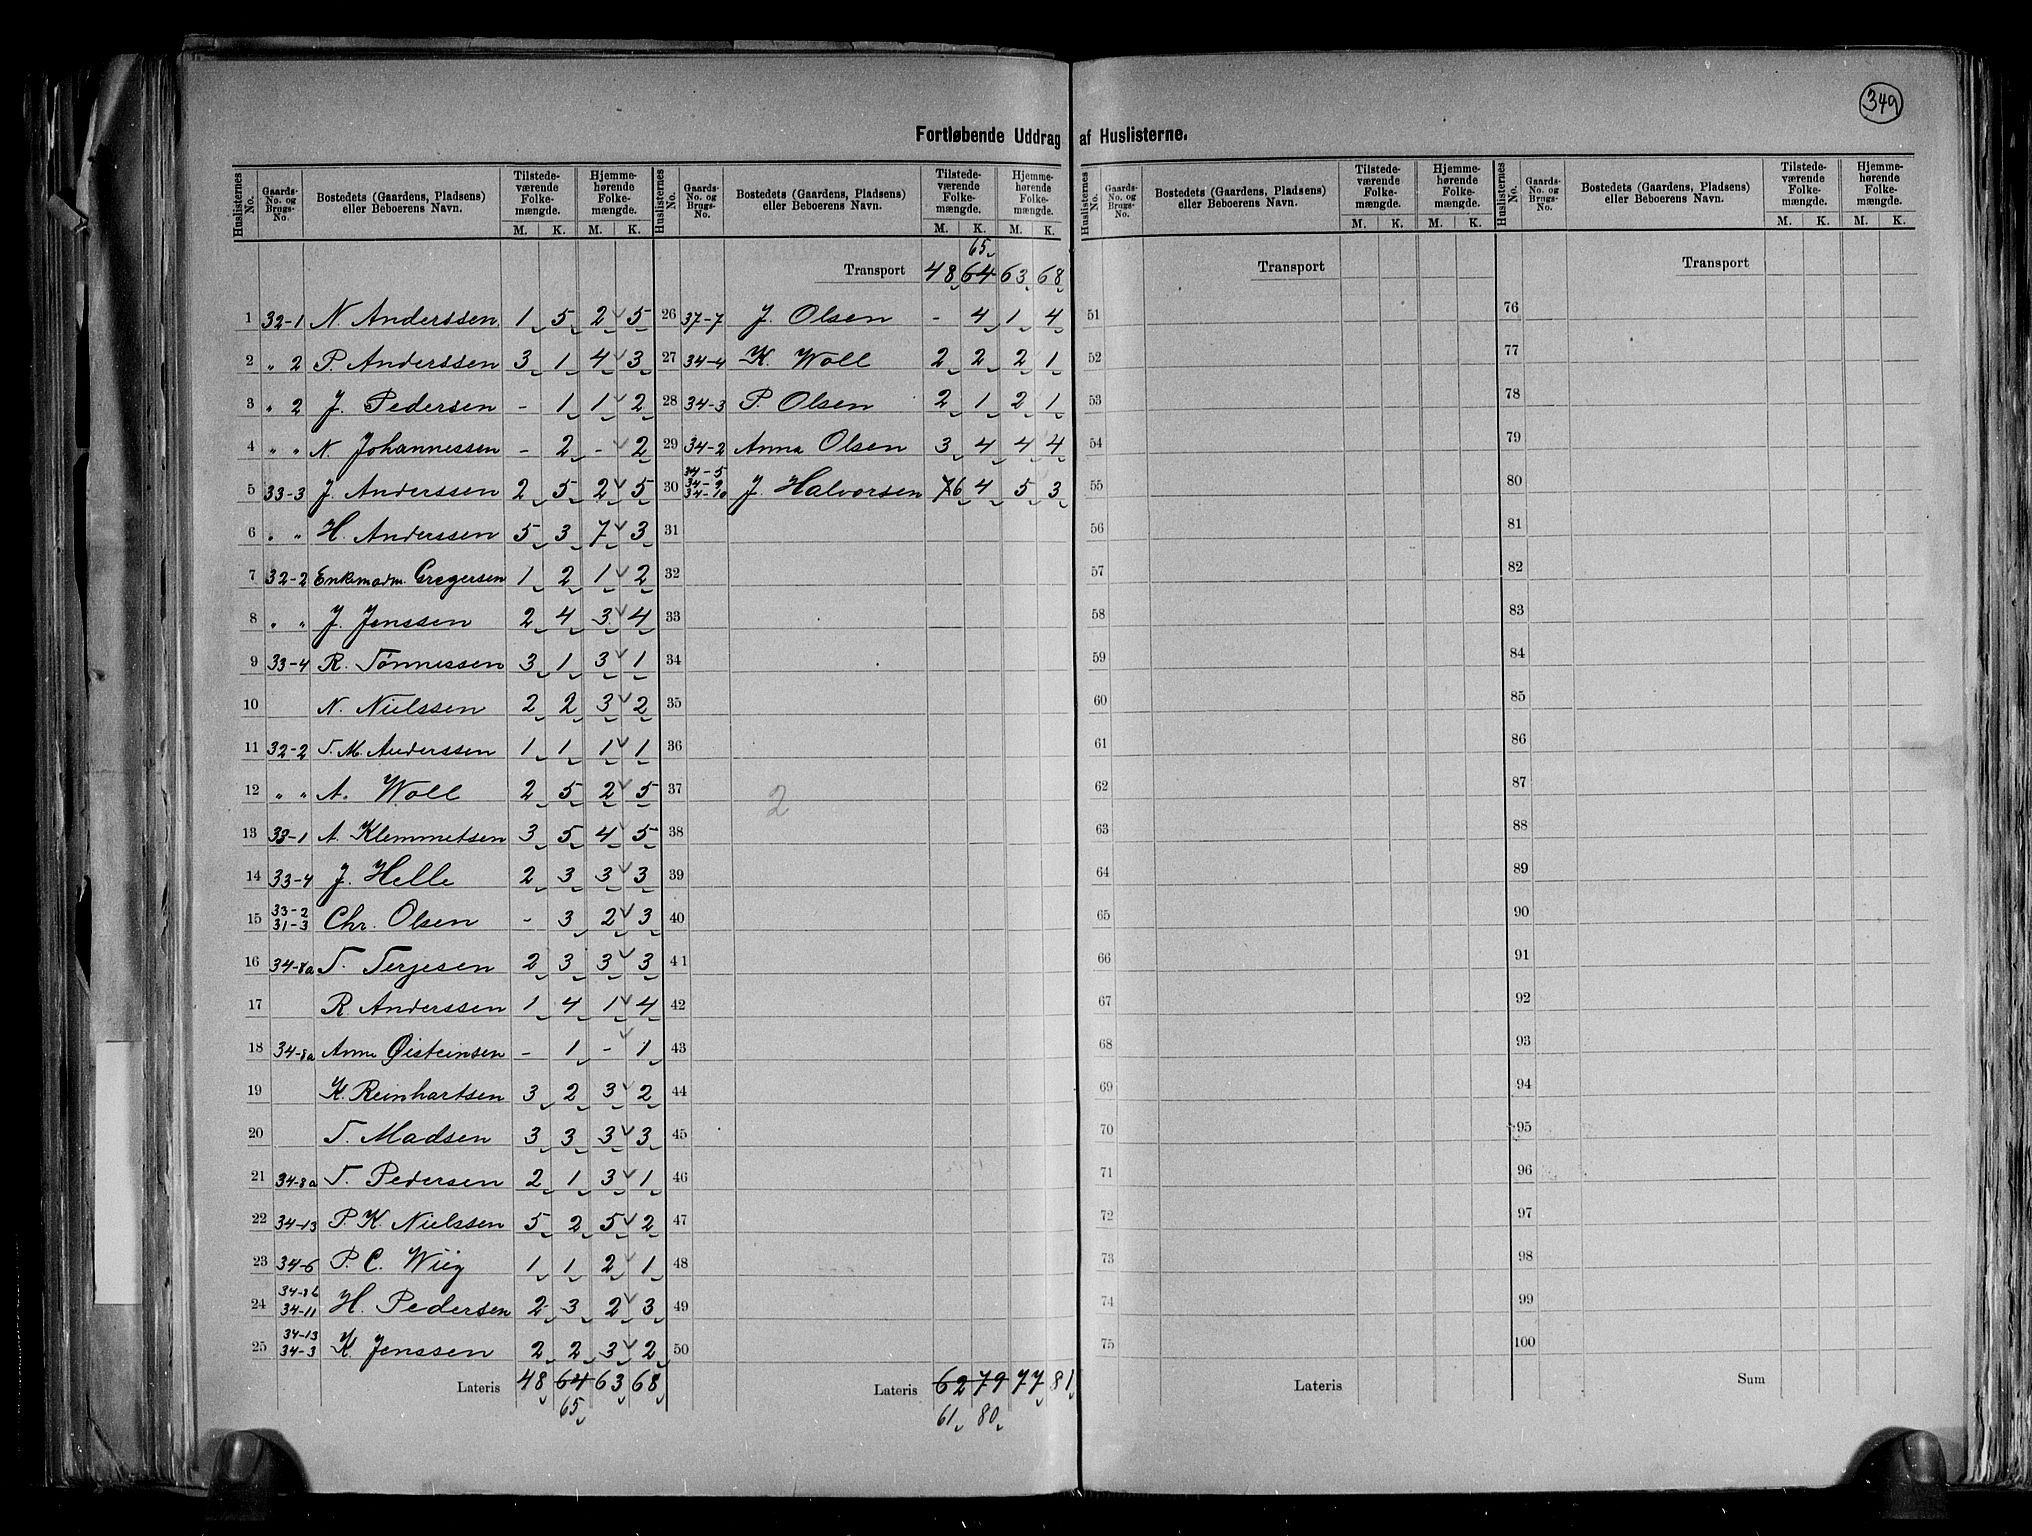 349
Fortløbende Uddrag af Huslisterne.
Huslisternes No. Gaards-No. og Brugs-No. Bostedets (Gaardens, Pladsens) eller Beboerens Navn. Tilstedeværende Folkemængde. M. K. Hjemmehørende Folkemængde. M. K.
1 32-1 N. Anderssen 1 5 2 5
2 " 2 P. Anderssen 3 1 4 3
3 " 2 J. Pedersen - 1 1 2
4 " " N. Johannessen - 2 - 2
5 33-3 J. Anderssen 2 5 2 5
6 " " H. Anderssen 5 3 7 3
7 32-2 Enkmadm. Gregersen 1 2 1 2
8 " " J. Jenssen 2 4 3 4
9 33-4 R. Tönnessen 3 1 3 1
10 N. Nielssen 2 2 3 2
11 32-2 T. M. Anderssen 1 1 1 1
12 " " A. Woll 2 5 2 5
13 33-1 A. Klemmetsen 3 5 4 5
14 33-4 J. Helle 2 3 3 3
15 33-2 31-3 Chr. Olsen - 3 2 3
16 34-8a T. Terjesen 2 3 3 3
17 R. Anderssen 1 4 1 4
18 34-8a Anne Øisteinsen - 1 - 1
19 K. Reinhartsen 3 2 3 2
20 T. Madsen 3 3 3 3
21 34-8a T. Pedersen 2 1 3 1
22 34-13 P. K. Nielssen 5 2 5 2
23 34-6 P. C. Wiig 1 1 2 1
24 34-8b 34-11 H. Pedersen 2 3 2 3
25 34-13 34-3 K. Jenssen 2 2 3 2
Lateris 48 64 63 68
65
Huslisternes No. Gaards-No. og Brugs-No. Bostedets (Gaardens, Pladsens) eller Beboerens Navn. Tilstedeværende Folkemængde. M. K. Hjemmehørende Folkemængde. M. K.
65
Transport 48 64 63 68
26 37-7 J. Olsen - 4 1 4
27 34-4 K. Woll 2 2 2 1
28 34-3 P. Olsen 2 1 2 1
29 34-2 Anna Olsen 3 4 4 4
30 34-5 34-9 34-10 J. Halvorsen 7 6 4 5 3
31
32
33
34
35
36
37
2
38
39
40
41
42
43
44
45
46
47
48
49
50
Lateris 62 79 77 81
61 80
Huslisternes No. Gaards-No. og Brugs-No. Bostedets (Gaardens, Pladsens) eller Beboerens Navn. Tilstedeværende Folkemængde. M. K. Hjemmehørende Folkemængde. M. K.
Transport
51
52
53
54
55
56
57
58
59
60
61
62
63
64
65
66
67
68
69
70
71
72
73
74
75
Lateris
Huslisternes No. Gaards-No. og Brugs-No. Bostedets (Gaardens, Pladsens) eller Beboerens Navn. Tilstedeværende Folkemængde. M. K. Hjemmehørende Folkemængde. M. K.
Transport
76
77
78
79
80
81
82
83
84
85
86
87
88
89
90
91
92
93
94
95
96
97
98
99
100
Sum